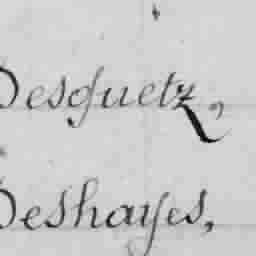 Desquetz,
Deshayes,